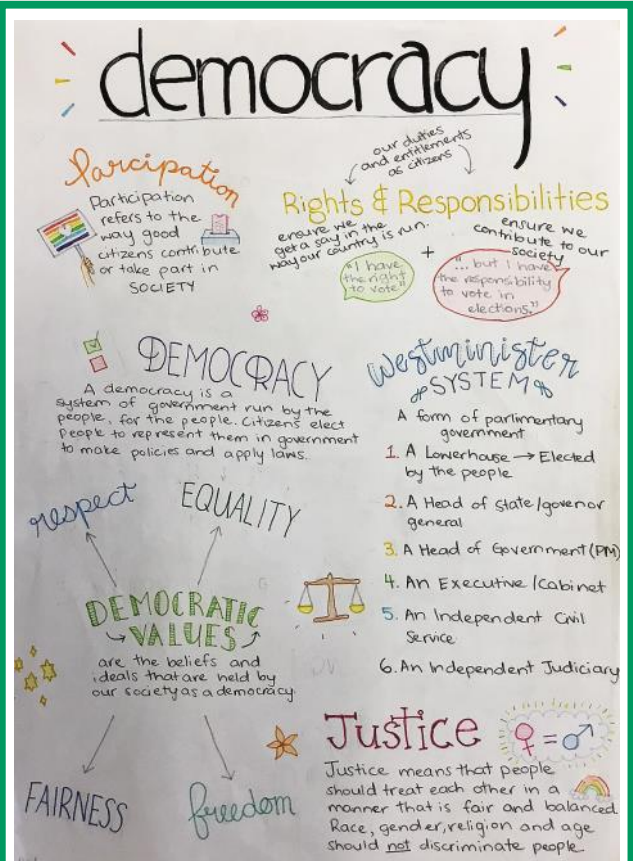 democracy
Parcipation
Participation
refers to the
way good
citizens contribute
or take part in
SOCIETY
our duties
and entitlements
as citizens
Rights & Responsibilities
ensure we
get a say in the
way our country is run.
+
ensure we
contribute to our
society
"I have
the right
to vote"
"... but I have
the responsibility
to vote in
elections."
DEMOCRACY
A democracy is a
system of government run by the
people, for the people. Citizens elect
people to represent them in government
to make policies and apply laws.
Westminister
SYSTEM
A form of parlimentary
government
1. A Lowerhouse → Elected
by the people
2. A Head of state/governor
general
3. A Head of Government (PM)
4. An Executive/Cabinet
5. An Independent Civil
Service
6. An Independent Judiciary
respect
EQUALITY
DEMOCRATIC
VALUES
are the beliefs and
ideals that are held by
our society as a democracy.
FAIRNESS
freedom
Justice
♀=♂
Justice means that people
should treat each other in a
manner that is fair and balanced
Race, gender, religion and age
should not discriminate people.